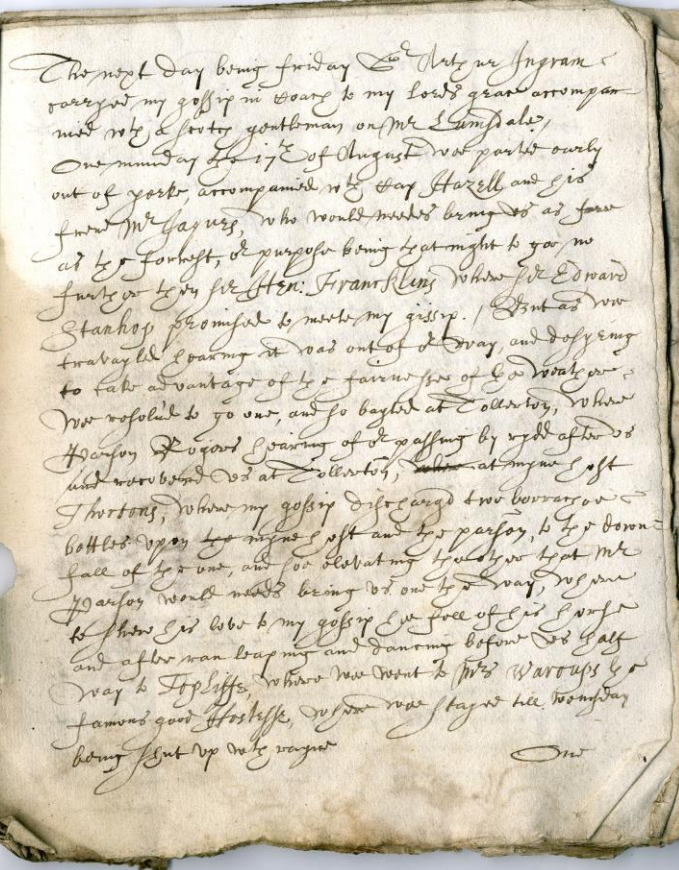 The next day being friday Sr Arthur Ingram
carryed my gossip in Coach to my lords grace accompan=
nied wth a scotch gentleman on Mr Lumsdale /
One munday the 17th of August wee parted early
out of yorke, accompanied wth Cap Hazell and his
frend Mr Sagurs, who would needes bring us as farr
as the forrest, or purpose being that night to goe no
further then Sir Hen: Francklins where Sir Edward
Stanhop promised to meete my gissip. / But as wee
travayled hearing it was out of or way, and desyring
to take advantage of the fairnesse of the weather
wee resolud to go one, and so bayted at Tollerton, where
Parson Rogers hearing of or passing by rydd after us
and recovered us at Tollerton, at myne host
Thortons, where my gossip dischargd two borrachoe
bottles upon myne host and the parson, to the down=
fall of the one, and soe elevating the other that Mr
Parson would needs bring us one the way, where
to shew his love to my gossip he fell of his horse
and after ran leaping and dancing before us half
way to Topliffe, where wee went to Mrs Waroups the
famous good Hostesse, where wee stayed till Wensday
being shut up wth rayne One